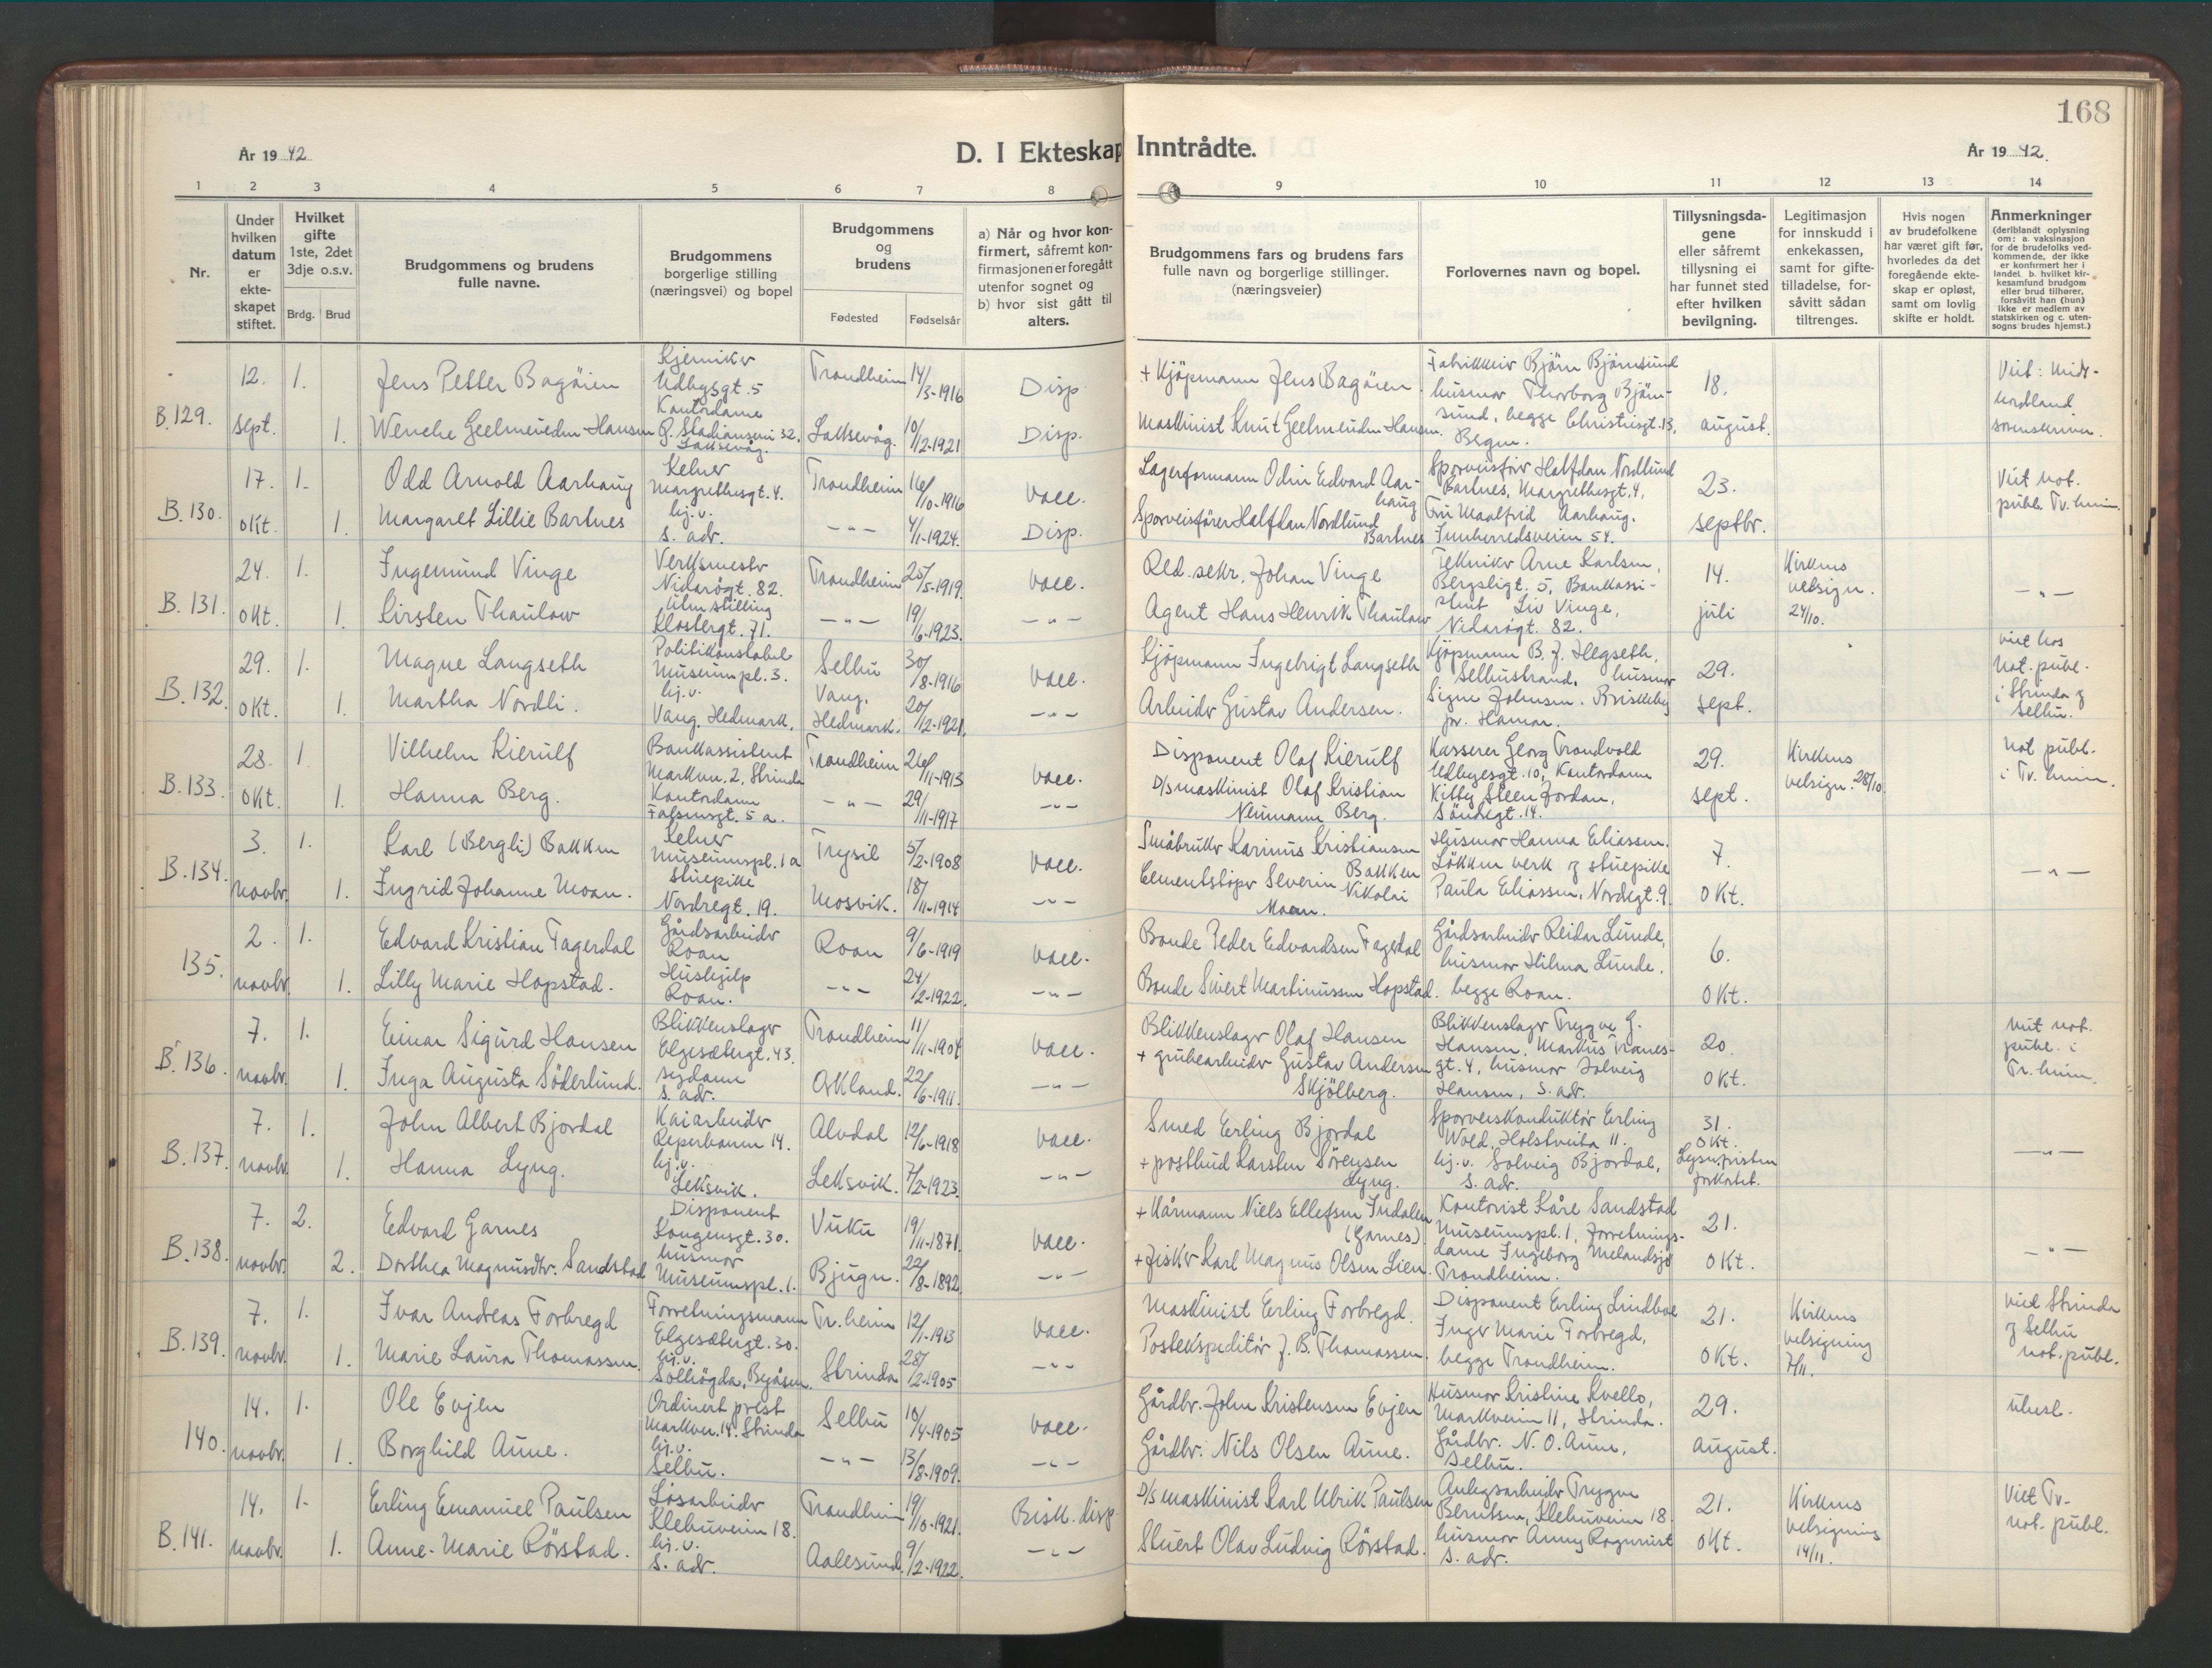 168
År 1942
D. I Ekteskap Inntrådte.
År 1942.
1 2 3 4 5 6 7 8 9 10 11 12 13 14
Nr.
Under hvilken datum er ekteskapet stiftet.
Hvilket gifte 1ste, 2det 3dje o.s.v.
Brdg. Brud
Brudgommens og brudens fulle navne.
Brudgommens borgerlige stilling (næringsvei) og bopel
Brudgommens og brudens
Fødested
Fødselsår
a) Når og hvor konfirmert, såfremt konfirmasjonen er foregått utenfor sognet og b) hvor sist gått til alters.
Brudgommens fars og brudens fars fulle navn og borgerlige stillinger. (næringsveier)
Forlovernes navn og bopel.
Tillysningsdagene eller såfremt tillysning ei har funnet sted efter hvilken bevilgning.
Legitimasjon for innskudd i enkekassen, samt for giftetilladelse, forsåvitt sådan tiltrenges.
Hvis nogen av brudefolkene har været gift før, hvorledes da det foregående ekteskap er opløst, samt om lovlig skifte er holdt.
Anmerkninger (deriblandt oplysning om: a. vaksinasjon for de brudefolks vedkommende, der ikke er konfirmert her i landet. b. hvilket kirkesamfund brudgom eller brud tilhører, forsåvitt han (hun) ikke er medlem av statskirken og c. utensogns brudes hjemst.)
B.129. 12. sept. 1. 1.
Jens Petter Bagøien
Kjemiker
Udbygt. 5
Trondheim 14/3-1916
Disp
+ Kjöpmann Jens Bagöien
Fabrikkeier Björn Björnsund
husmor Thorborg Björnsund, begge Christiesgt. 13, Bergen.
Wenche Geelmeuden Hansen
Kontordame
Laksevåg.
Laksevåg. 10/12-1921
Disp.
Maskinist Knut Geelmeuden Hansen.
18. august.
Viet: Midt-
hordland
sorenskriver.
B.130. 17. okt. 1. 1.
Odd Arnold Aarhaug
Kelner
Margrethesgt. 4.
Trondheim 16/10-1916
vacc.
Lagerformann Odin Edvard Aarhaug
Sporveisfører Halfdan Nordlund
Bartnes, Margrethesgt. 4,
Margaret Lillie Bartnes
hj.v.
s. adr.
-"- 4/1-1924.
Disp.
Sporveisförer Halfdan Nordlund Bartnes
Fru Maalfrid Aarhaug.
Innherredsveien 54.
23. septbr.
Viet not.
publ. Tr.heim.
B.131. 24. okt. 1. 1.
Ingemund Vinge
Verksmester
Nidarögt. 82.
Trondheim 25/5-1919.
vacc.
Red. sekr. Johan Vinge
Tekniker Arne Karlsen,
Bergsligt. 5, Bankassistent Liv Vinge,
Nidarögt. 82.
Kirsten Thaulow
uten stilling
Klostergt. 71.
-"- 19/6-1923.
-"-
Agent Hans Henrik Thaulow
14. juli
Kirkens velsign. 24/10.
-"-
B.132. 29. okt. 1. 1.
Magne Langseth
Politikonstabel
Museumspl. 3.
Selbu 30/8-1916
vacc.
Kjöpmann Ingebrigt Langseth
Kjöpmann B. J. Hegseth,
Selbustrand, husmor
Martha Nordli.
hj.v.
Vang, Hedmark.
Vang, Hedmark. 20/12-1921.
-"-
Arbeider Gustav Andersen.
Signe Johnsen. Briskeby
pr. Hamar.
29. sept.
viet hos
not. publ.
i Strinda og
Selbu.
B.133. 28. okt. 1. 1.
Vilhelm Kierulf
Bankassistent
Markvn. 2, Strinda
Trondheim 26/11-1913
vacc.
Disponent Olaf Kierulf
Kasserer Georg Trondvold
Udbyesgt. 10, Kontordame
Hanna Berg.
Kontordame
Falsensgt. 5 a.
-"- 29/11-1917
-"-
D/s maskinist Olaf Kristian
Neumann Berg.
Kitty Steen Jordan,
Söndregt. 14.
29. sept.
Kirkens velsign. 28/10.
Not publ.
i Tr.heim.
B.134. 3. novbr. 1. 1.
Karl (Bergli) Bakken
Kelner
Museumspl. 1a
Trysil 5/2-1908
vacc.
Småbruker Karinus Kristiansen Bakken
Husmor Hanna Eliassen.
Lökken verk og stuepike
Ingrid Johanne Moan.
stuepike
Nordregt. 19.
Mosvik. 18/11-1914
-"-
Cementstöper Severin Nikolai Moan.
Paula Eliassen, Nordregt. 9.
7. okt.
-"-
135. 2. novbr. 1. 1.
Edvard Kristian Fagerdal
Gårdsarbeider
Roan
Roan 9/6-1919
vacc.
Bonde Peder Edvardsen Fagerdal
Gårdsarbeider Reidar Lunde,
husmor Hilma Lunde,
Lilly Marie Hopstad.
Hushjelp
Roan.
-"- 24/2-1922.
-"-
Bonde Sivert Martinussen Hopstad.
begge Roan.
6. okt.
B.136. 7. novbr. 1. 1.
Einar Sigurd Hansen
Blikkenslager
Elgesætergt. 43.
Trondheim 11/11-1904
vacc.
Blikkenslager Olaf Hansen
Blikkenslager Trygve G.
Hansen, Markus Tranes-
gt. 4, husmor Solveig
Hansen, s. adr.
Inga Augusta Söderlund.
sydame
s. adr.
Orkland. 22/6-1911.
-"-
+ grubearbeider Gustav Andersen
Skjölberg.
20. okt.
viet not.
publ. i
Tr.heim.
B.137. 7. novbr. 1. 1.
John Albert Bjordal
Kaiarbeider
Reperbanen 14.
Alvdal 12/6-1918
vacc.
Smed Erling Bjordal
Sporveiskonduktör Erling
Wold, Holstveita 11.
Hanna Lyng.
hj.v.
Leksvik.
Leksvik. 7/2-1923.
-"-
+ postbud Karsten Sörensen
Lyng.
hj.v. Solveig Bjordal,
s. adr.
31. okt.
Lysn.fristen
forkortet.
-"-
B.138. 7. novbr. 2. 2.
Edvard Garnes
Disponent
Kongensgt. 30.
Vuku 19/11-1871.
vacc.
+ Kårmann Niels Ellefsen Indalen
(Garnes)
Kontorist Kåre Sandstad
Museumspl. 1, Forretnings-
dame Ingeborg Melandsjö
Trondheim.
Dorthea Magnusdtr. Sandstad
husmor
Museumspl. 1.
Bjugn. 22/8-1892
-"-
+ fisker Karl Magnus Olsen Lien.
21. okt.
-"-
B.139. 7. novbr. 1. 1.
Ivar Andreas Forbregd
Forretningsmann
Elgesætergt. 30.
Tr.heim 12/1-1913
vacc.
Maskinist Erling Forbregd.
Disponent Erling Lindboe
Inger Marie Forbregd,
begge Trondheim.
Marie Laura Thomassen.
hj.v.
Solhögda, Byåsen.
Strinda 28/2-1905
-"-
Postekspeditör J. B. Thomassen.
21. okt.
Kirkens velsigning 7/11.
viet Strinda
og Selbu
not. publ.
140. 14. novbr. 1. 1.
Ole Evjen
Ordinert prest
Markvn. 14. Strinda
Selbu 10/4-1905
vacc.
Gårdbr. John Kristensen Evjen
Husmor Kristine Kvello,
Markveien 11, Strinda.
Borghild Aune.
hj.v.
Selbu.
-"- 13/8-1909.
-"-
Gårdbr. Nils Olsen Aune.
Gårdbr. N. O. Aune,
Selbu.
29. august.
B.141. 14. novbr. 1. 1.
Erling Emanuel Paulsen
Lösarbeider
Klæbuveien 18.
Trondheim 19/10-1921.
Bisk. disp.
D/s maskinist Karl Ulrik Paulsen
Anlegsarbeider Trygve
Berntsen, Klebuveien 18
Anne-Marie Rörstad.
hj.v.
s. adr.
Aalesund. 9/2-1922.
-"-
Stuert Olav Ludvig Rörstad.
husmor Anny
s. adr.
21. okt.
Kirkens velsigning 14/11.
Viet Tr.
not. publ.